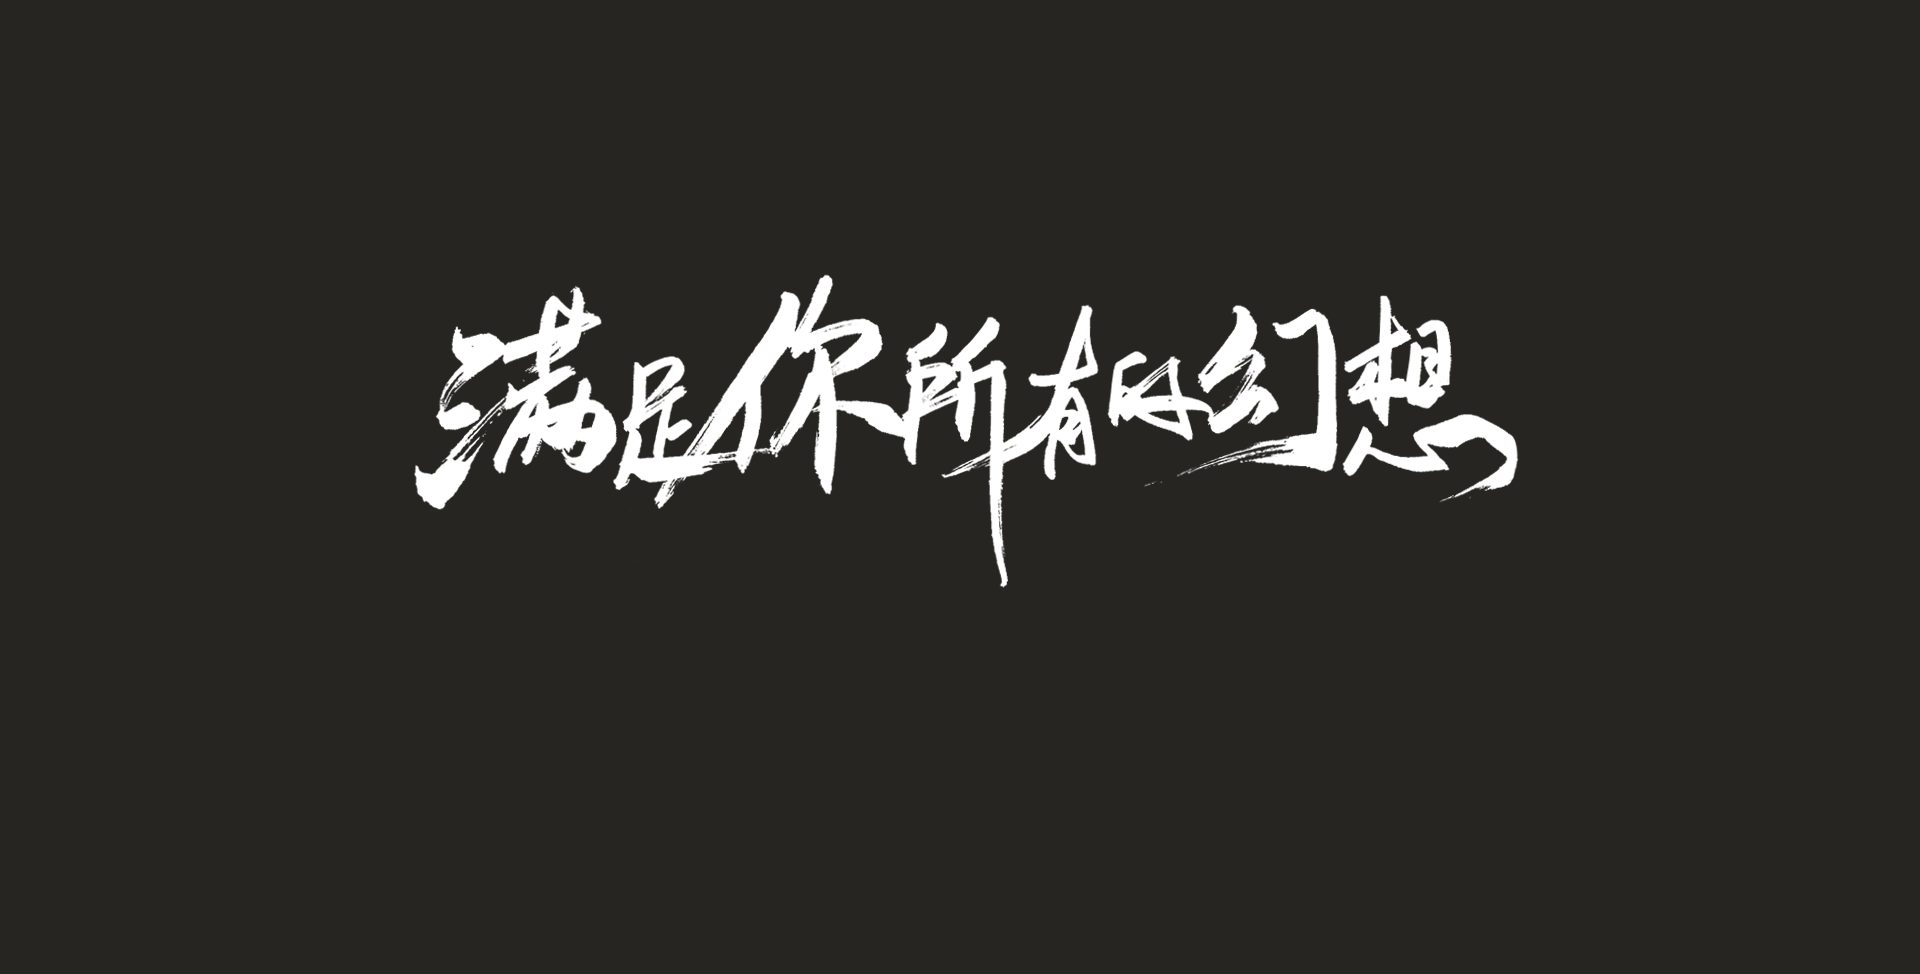 满足你所有的幻想